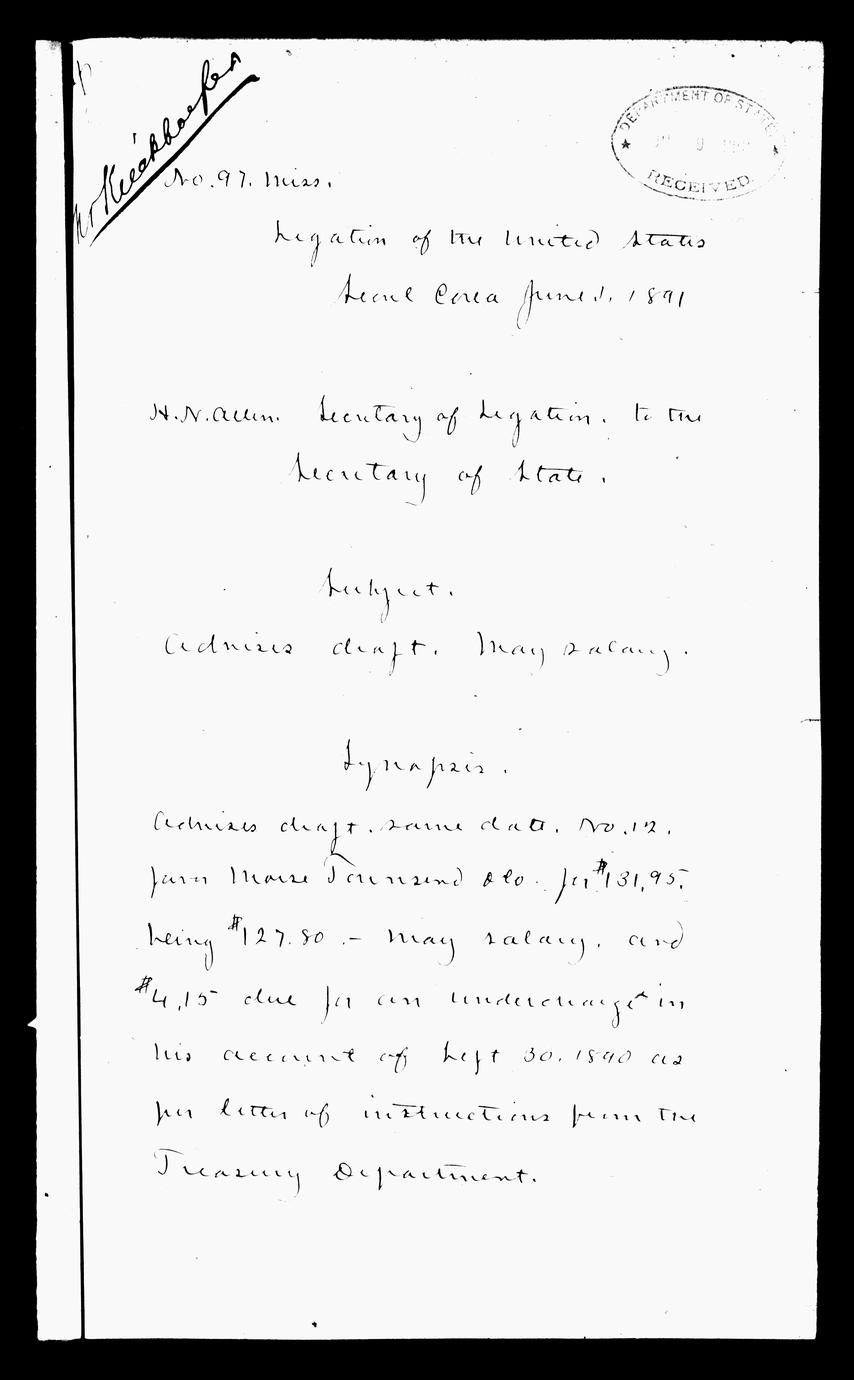 Mr Kieckhoefer
DEPARTMENT OF STATE
9
RECEIVED
No. 97. Miss.
Legation of the United States
Seoul Corea June 1. 1891
H. N. Allen. Secretary of Legation. to the
Secretary of State.
Subject.
Advises draft. May salary.
Synopsis.
Advises draft. same date. No. 12.
favor Morse Townsend &Co. for $131,95.
being $127.80 .– May salary. and
$4,15 due for an undercharge in
his account of Sept 30. 1890 as
per letter of instructions from the
Treasury Department.